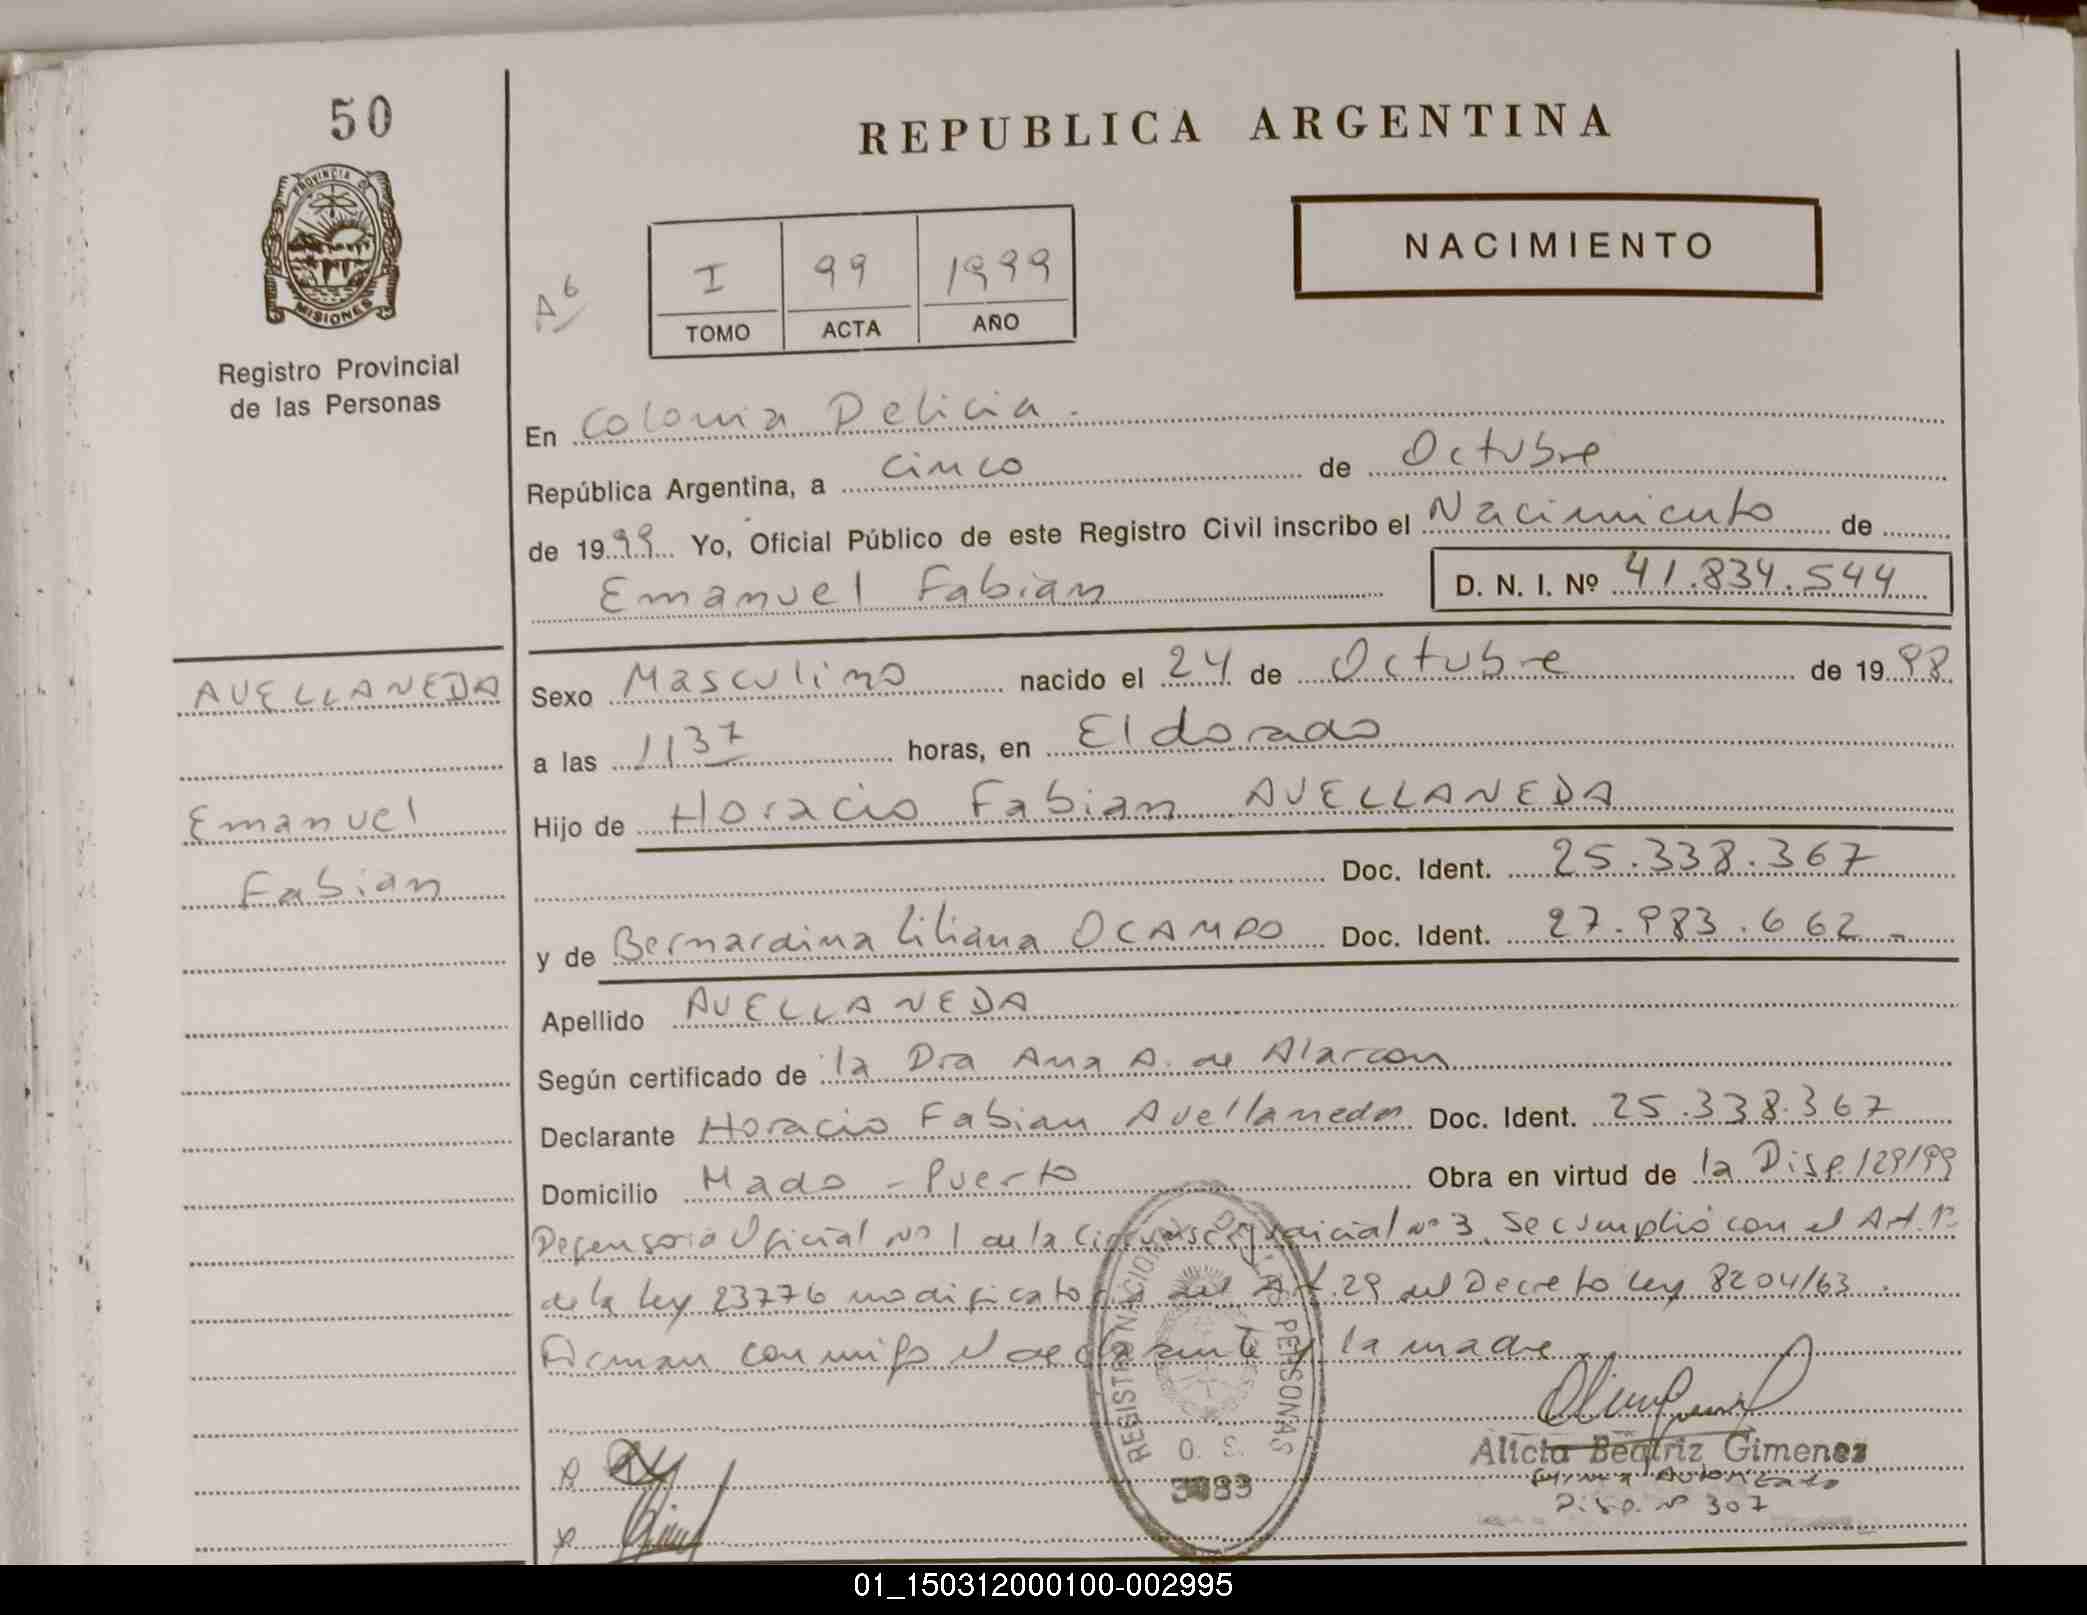 50
REPUBLICA ARGENTINA
PROVINCIA DE
MISIONES
Registro Provincial
de las Personas
NACIMIENTO
A6
I 99 1999
TOMO ACTA AÑO
En Colonia Delicia.
República Argentina, a cinco de Octubre
de 1999 Yo, Oficial Público de este Registro Civil inscribo el Nacimiento de
Emanuel Fabian D. N. I. Nº 41.834.544
AVELLANEDA
Emanuel
Fabian
Sexo Masculino nacido el 24 de Octubre de 1998
a las 1137 horas, en Eldorado
Hijo de Horacio Fabian AVELLANEDA
Doc. Ident. 25.338.367
y de Bernardina Liliana OCAMPO Doc. Ident. 27.983.662.-
Apellido AVELLANEDA
Según certificado de la Dra Ana A. de Alarcon
Declarante Horacio Fabian Avellaneda Doc. Ident. 25.338.367
Domicilio Mado - Puerto Obra en virtud de la Disp. 129/99
Defensoria Oficial Nº 1 de la Circunscrip judicial nº 3. Se cumplió con el Art. 1º
de la ley 23776 modificatoria del Art. 29 del Decreto ley 8204/63.
Firman conmigo el declarante y la madre
REGISTRO NACIONAL DE PERSONAS
O. S.
3083
Alicia Beatriz Gimenez
Firma Autorizada
Disp. nº 307
01_150312000100-002995